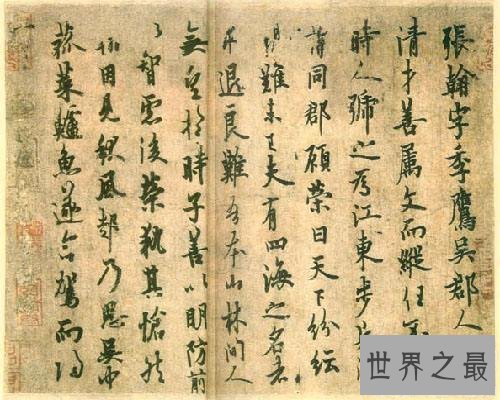 張翰字季鷹吳郡人
清才善屬文而縱任不
時人號之為江東步兵
謂同郡顧榮曰天下紛紜
禍難未已夫有四海之名者
求退良難吾本山林間人
無望於時子善以明防前
以智慮後榮執其愴然
翰因見秋風起乃思吳中
菰菜鱸魚遂命駕而歸
世界之最